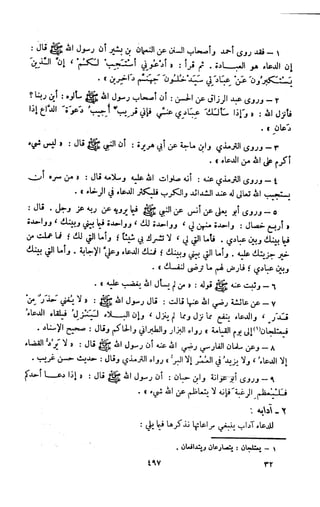 ١ - فقد روى أحمد وأصحاب السنن عن النعمان بن بشير أن رسول الله ﷺ قال :
إن الدعاء هو العبادة . ثم قرأ : « ادعوني أستجب لكم ، إن الذين
يستكبرون عن عبادتي سيدخلون جهنم داخرين » .
٢ - وروى عبد الرزاق عن الحسن : أن أصحاب رسول الله ﷺ سألوه : أين ربنا ؟
فأنزل الله : « وإذا سألك عبادي عني فإني قريب أجيب دعوة الداع إذا
دعان » .
٣ - وروى الترمذي وابن ماجة عن أبي هريرة : أن النبي ﷺ قال : « ليس شيء
أكرم على الله من الدعاء » .
٤ - وروى الترمذي عنه : أنه صلوات الله عليه وسلامه قال : « من سره أن
يستجيب الله تعالى له عند الشدائد والكرب فليكثر الدعاء في الرخاء » .
٥ - وروى أبو يعلى عن أنس عن النبي ﷺ فيما يرويه عن ربه عز وجل . قال :
« أربع خصال : واحدة منهن لي ، وواحدة لك ، وواحدة فيما بيني وبينك ، وواحدة
فيما بينك وبين عبادي . فأما التي لي ، لا تشرك بي شيئاً ؛ وأما التي لك ؛ فما عملت من
خير جزيتك عليه . وأما التي بيني وبينك ؛ فمنك الدعاء وعلي الإجابة . وأما التي بينك
وبين عبادي ؛ فارض لهم ما ترضى لنفسك » .
٦ - وثبت عنه ﷺ قوله : « من لم يسأل الله يغضب عليه » .
٧ - عن عائشة رضي الله عنها قالت : قال رسول الله ﷺ : « لا يغني حذر من
قدر ، والدعاء ينفع مما نزل ومما لم ينزل ، وإن البلاء لينزل فيلقاه الدعاء
فيعتلجان (١) إلى يوم القيامة » رواه البزار والطبراني والحاكم وقال : صحيح الإسناد .
٨ - وعن سلمان الفارسي رضي الله عنه أن رسول الله ﷺ قال : « لا يرد القضاء
إلا الدعاء ، ولا يزيد في العمر إلا البر » رواه الترمذي وقال : حديث حسن غريب .
٩ - وروى أبو عوانة وابن حبان : أن رسول الله ﷺ قال : « إذا دعا أحدكم
فليعظم الرغبة فإنه لا يتعاظم عن الله شيء » .
٢ - آدابه :
للدعاء آداب ينبغي مراعاتها نذكرها فيما يلي :
١ - يعتلجان : يتصارعان ويتدافعان .
٤٩٧
٣٢